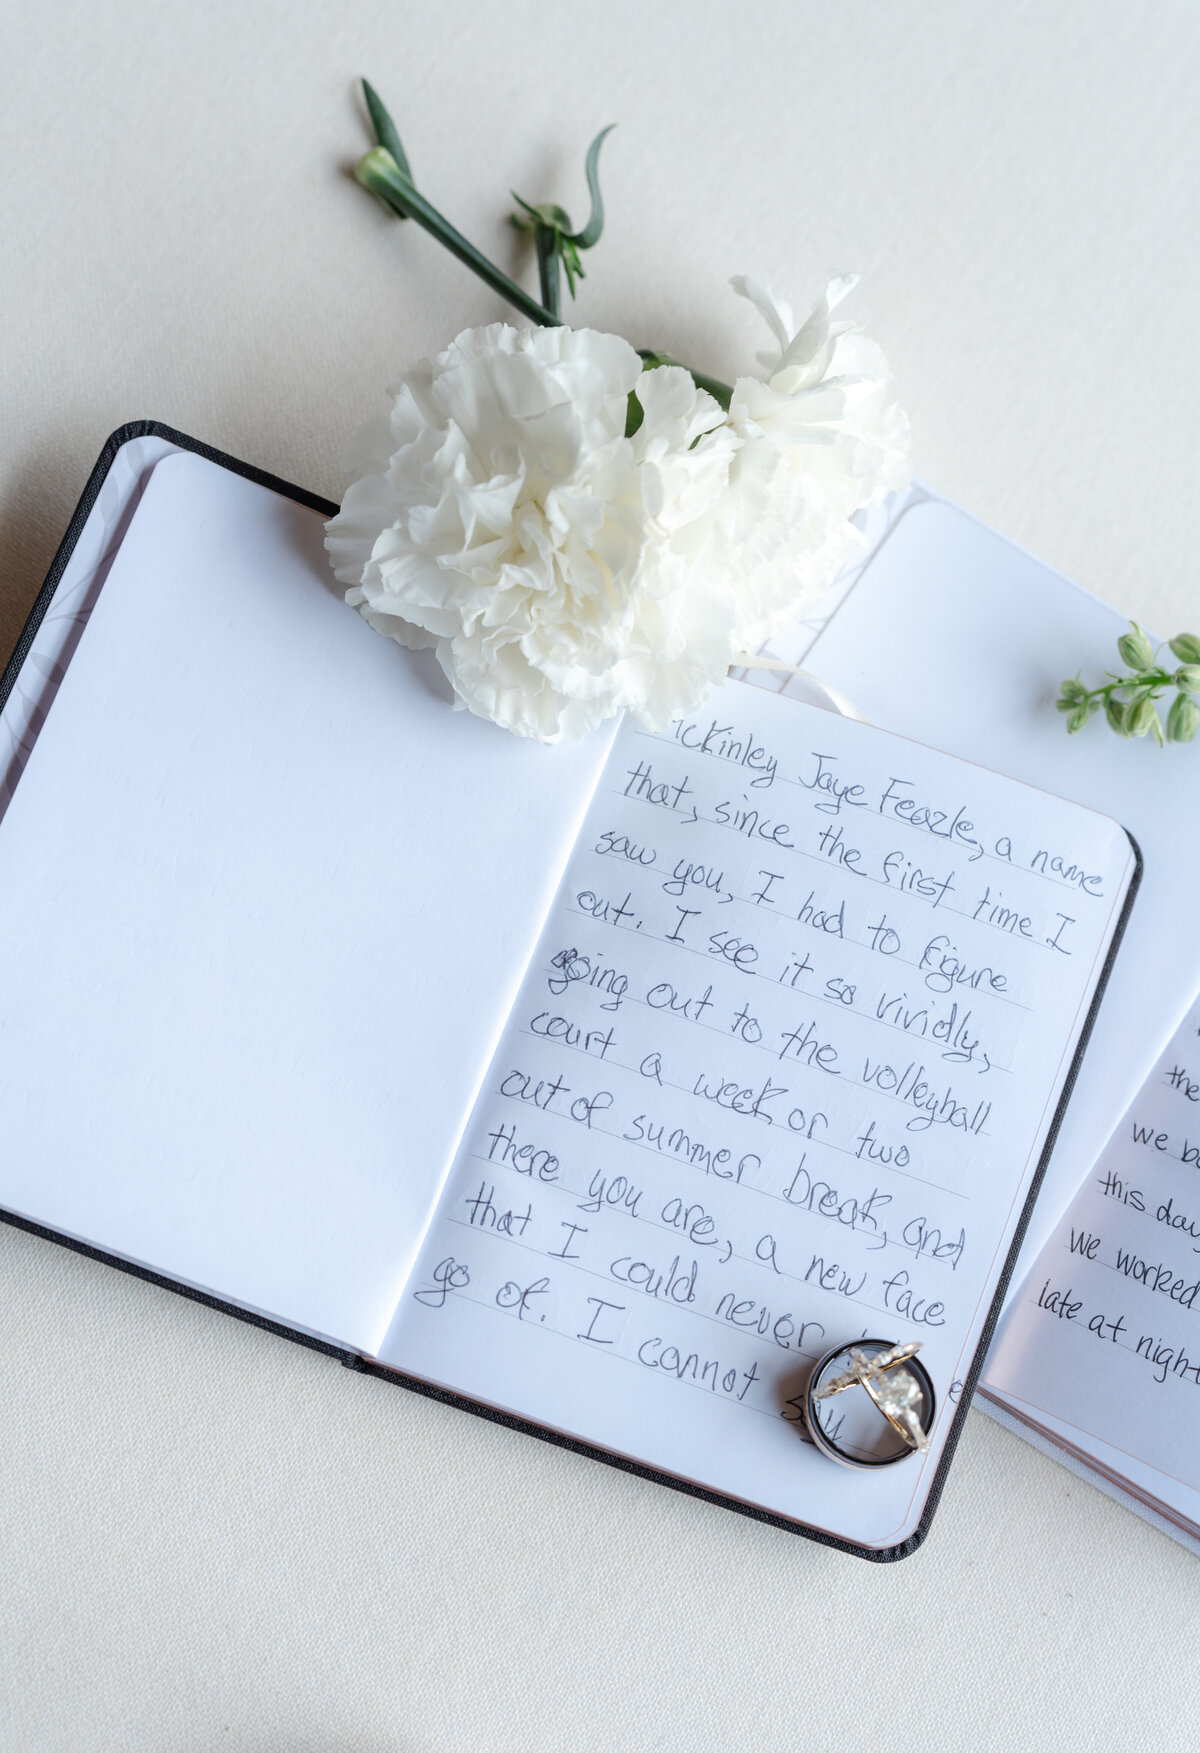 McKinley Jaye Feazle, a name
that, since the first time I
saw you, I had to figure
out. I see it so vividly,
going out to the volleyball
court a week or two
out of summer break, and
there you are, a new face
that I could never
go of. I cannot say
the
we
this day
we worked
late at night